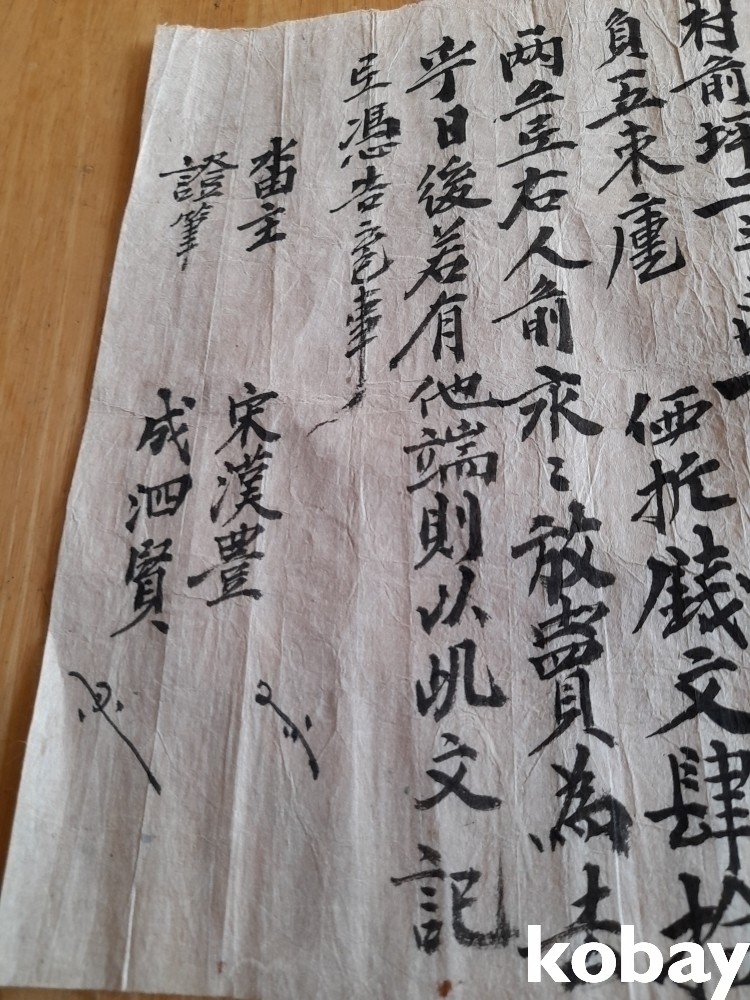 村前坪二
負五束 価折錢文肆拾
两 右人前永〻放賣為去
乎日後若有他端則以此文記
憑告官事
畓主 宋漢豊
證筆 成泗賢
kobay